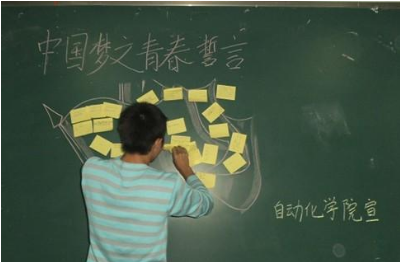 中国梦之青春誓言
自动化学院宣